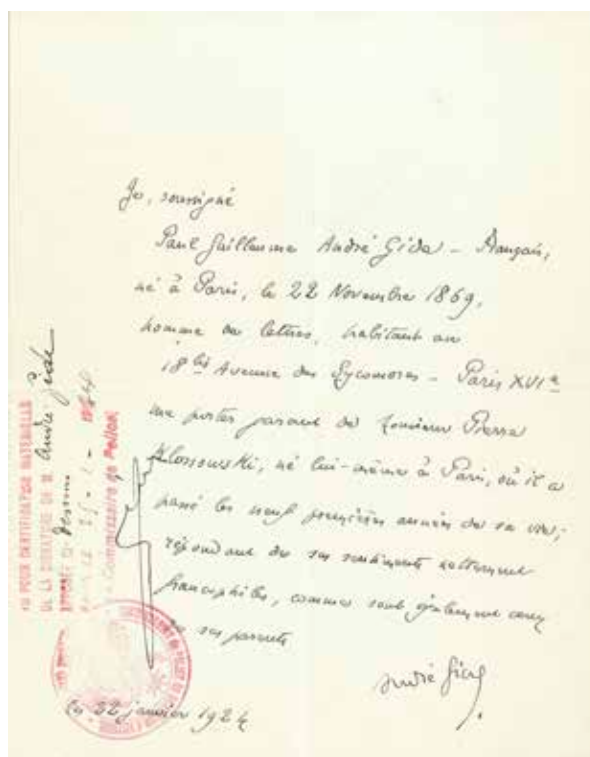 Je, soussigné
Paul Guillaume André Gide – Français,
né à Paris, le 22 Novembre 1869,
homme de lettres, habitant au
18 bis Avenue des Sycomores – Paris XVIe
me portes garant de Monsieur Pierre
Klossowski, né lui-même à Paris, où il a
passé les neuf premières années de sa vie;
répondant de ses sentiments nettement
francophiles, comme sont également ceux
de ses parents
André Gide
le 22 janvier 1924
VU POUR CERTIFICATION MATERIELLE
DE LA SIGNATURE DE M André Gide
APPOSÉE CI dessous
Commissaire de Police